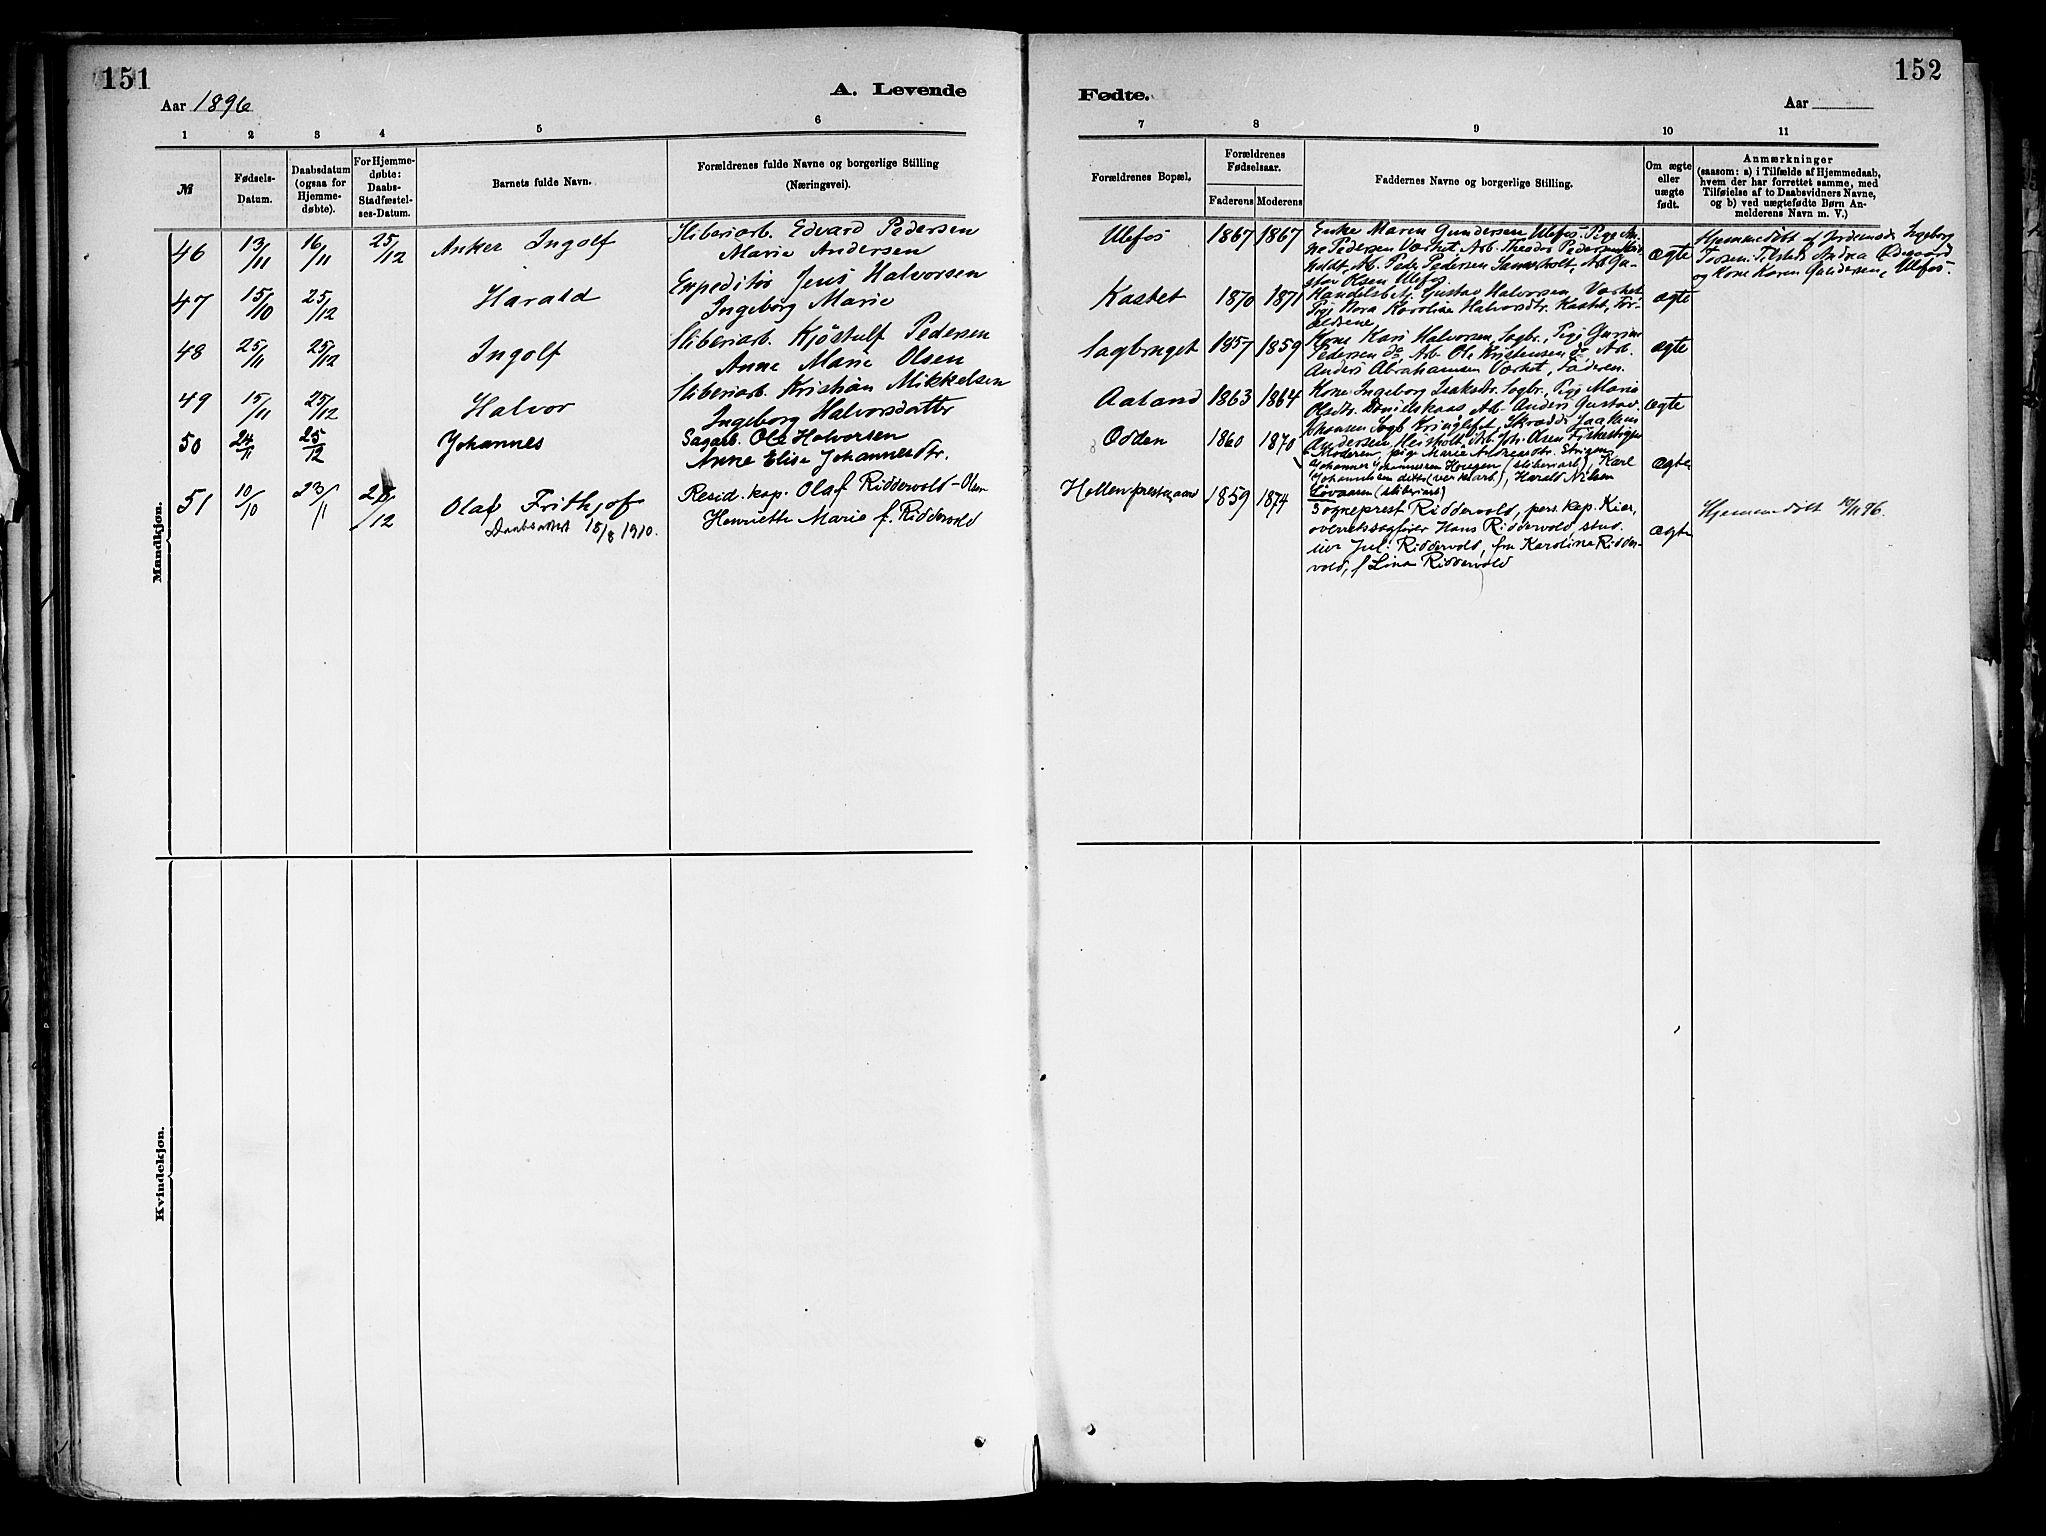 151
Aar 1896
A. Levende
1 2 3 4 5 6
№
Fødsels-
Datum.
Daabsdatum
(ogsaa for
Hjemme-
døbte).
For Hjemme-
døbte:
Daabs-
Stadfæstel-
ses-Datum.
Barnets fulde Navn.
Forældrenes fulde Navne og borgerlige Stilling
(Næringsvei).
Mandkjøn.
46 13/11 16/11 25/12 Anker Ingolf
Sliberiarb. Edvard Pedersen
Marie Andersen
47 15/10 25/12 Harald
Expeditør Jens Halvorsen
Ingeborg Marie
48 25/11 25/12 Ingolf
Sliberiarb. Kjøstulf Pedersen
Anne Marie Olsen
49 15/11 25/12 Halvor
Sliberiarb. Kristian Mikkelsen
Ingeborg Halvorsdatter
50 24/11 25/12 Johannes
Sagarb. Ole Halvorsen
Anne Elise Johannesdtr.
51 10/10 23/11 25/12 Olaf Frithjof
Daabsattest 15/8 1910.
Resid. kap. Olaf Riddervold-Olsen
Henriette Marie f. Riddervold
Kvindekjøn.
152
Fødte.
Aar
7 8 9 10 11
Forældrenes Bopæl,
Forældrenes
Fødselsaar.
Faderens Moderens
Faddernes Navne og borgerlige Stilling.
Om ægte
eller
uægte
født.
Anmærkninger
(saasom: a) i Tilfælde af Hjemmedaab,
hvem der har forrettet samme, med
Tilføielse af to Daabsvidners Navne,
og b) ved uægtefødte Børn An-
melderens Navn m. V.)
Ulefos 1867 1867
Enke Maren Gundersen Ulefos. Pige An-
ne Pedersen Værket Arb. Theodor Pedersen
Holdt, Arb. Peder Pedersen Arb. Gu-
stav Olsen Ulefos.
ægte
Hjemmedøbt af Jordemoder Ingeborg
Torsen. Tilstede Andrea Ødegaard
og Kone Karen Gundersen, Ulefos.
Kastet 1870 1871
Handelsbetj. Gustav Halvorsen Værket
Pige Nora Karoline Halvorsdtr. Kastet, For-
ældrene
ægte
Sagbruget 1857 1859
Kone Kari Halvorsen, Sagbr., Pige
Pedersen do, Arb. Ole Kristensen do, Arb.
Anders Abrahamsen Værket, Faderen.
ægte
Aaland 1863 1864
Kone Ingeborg Isaksdtr. Sagbr., Pige Marie
Olsdtr. Arb. Anders Gustav
ægte
Odden 1860 1870
Andersen, Heisholt. Arb. Joh. Olsen
Moderen, pige Marie Andreasdtr.
Johannes Johannesen Hougen (sliberiarb), Karl
Johannesen ditto (værksarb), Harald Nilsen
Løvaasen (sliberiarb)
ægte
Hollen prestegaard 1859 1874
Sogneprest Riddervold, pers. kap. Kier,
overretssagfører Hans Riddervold, stud.
Jul. Riddervold, fru Karoline Ridder-
vold, f Lina Riddervold
ægte
Hjemmedøbt 96.